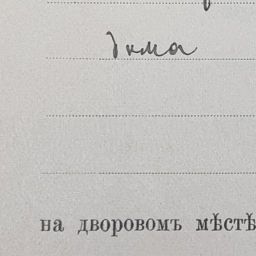 на дворовомъ мѣстѣ